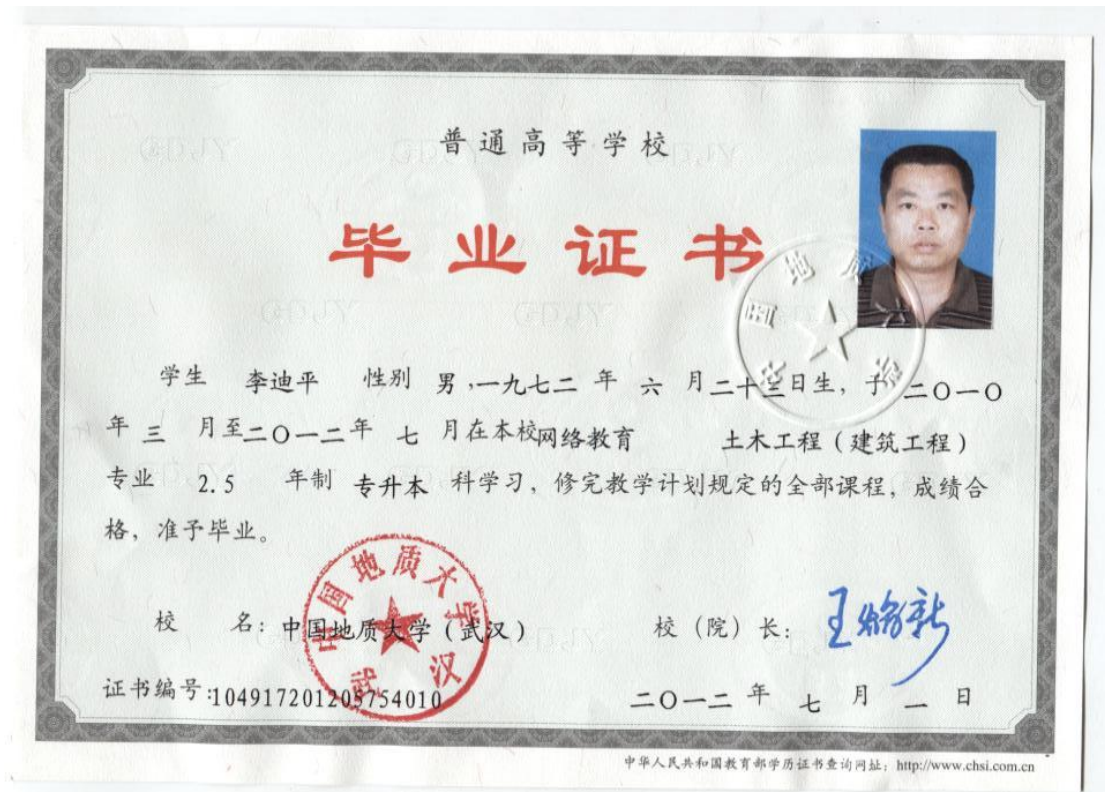 普通高等学校
毕业证书
学生 李迪平 性别 男,一九七二 年 六 月二十三日生，于 二〇一〇
年 三 月至二〇一二年 七 月在本校网络教育 土木工程（建筑工程）
专业 2.5 年制 专升本 科学习，修完教学计划规定的全部课程，成绩合
格，准予毕业。
校 名：中国地质大学（武汉） 校（院）长：王焰新
证书编号:104917201205754010 二〇一二 年 七 月 一 日
中国地质大学
武汉
中国地质大
中华人民共和国教育部学历证书查询网址：http://www.chsi.com.cn